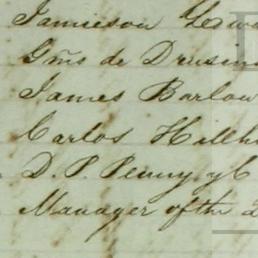 Jamieson Lew
Gm̃s de Drusin
James Barlow
Carlos Hillh
D. P. Penny y C
Manager of the